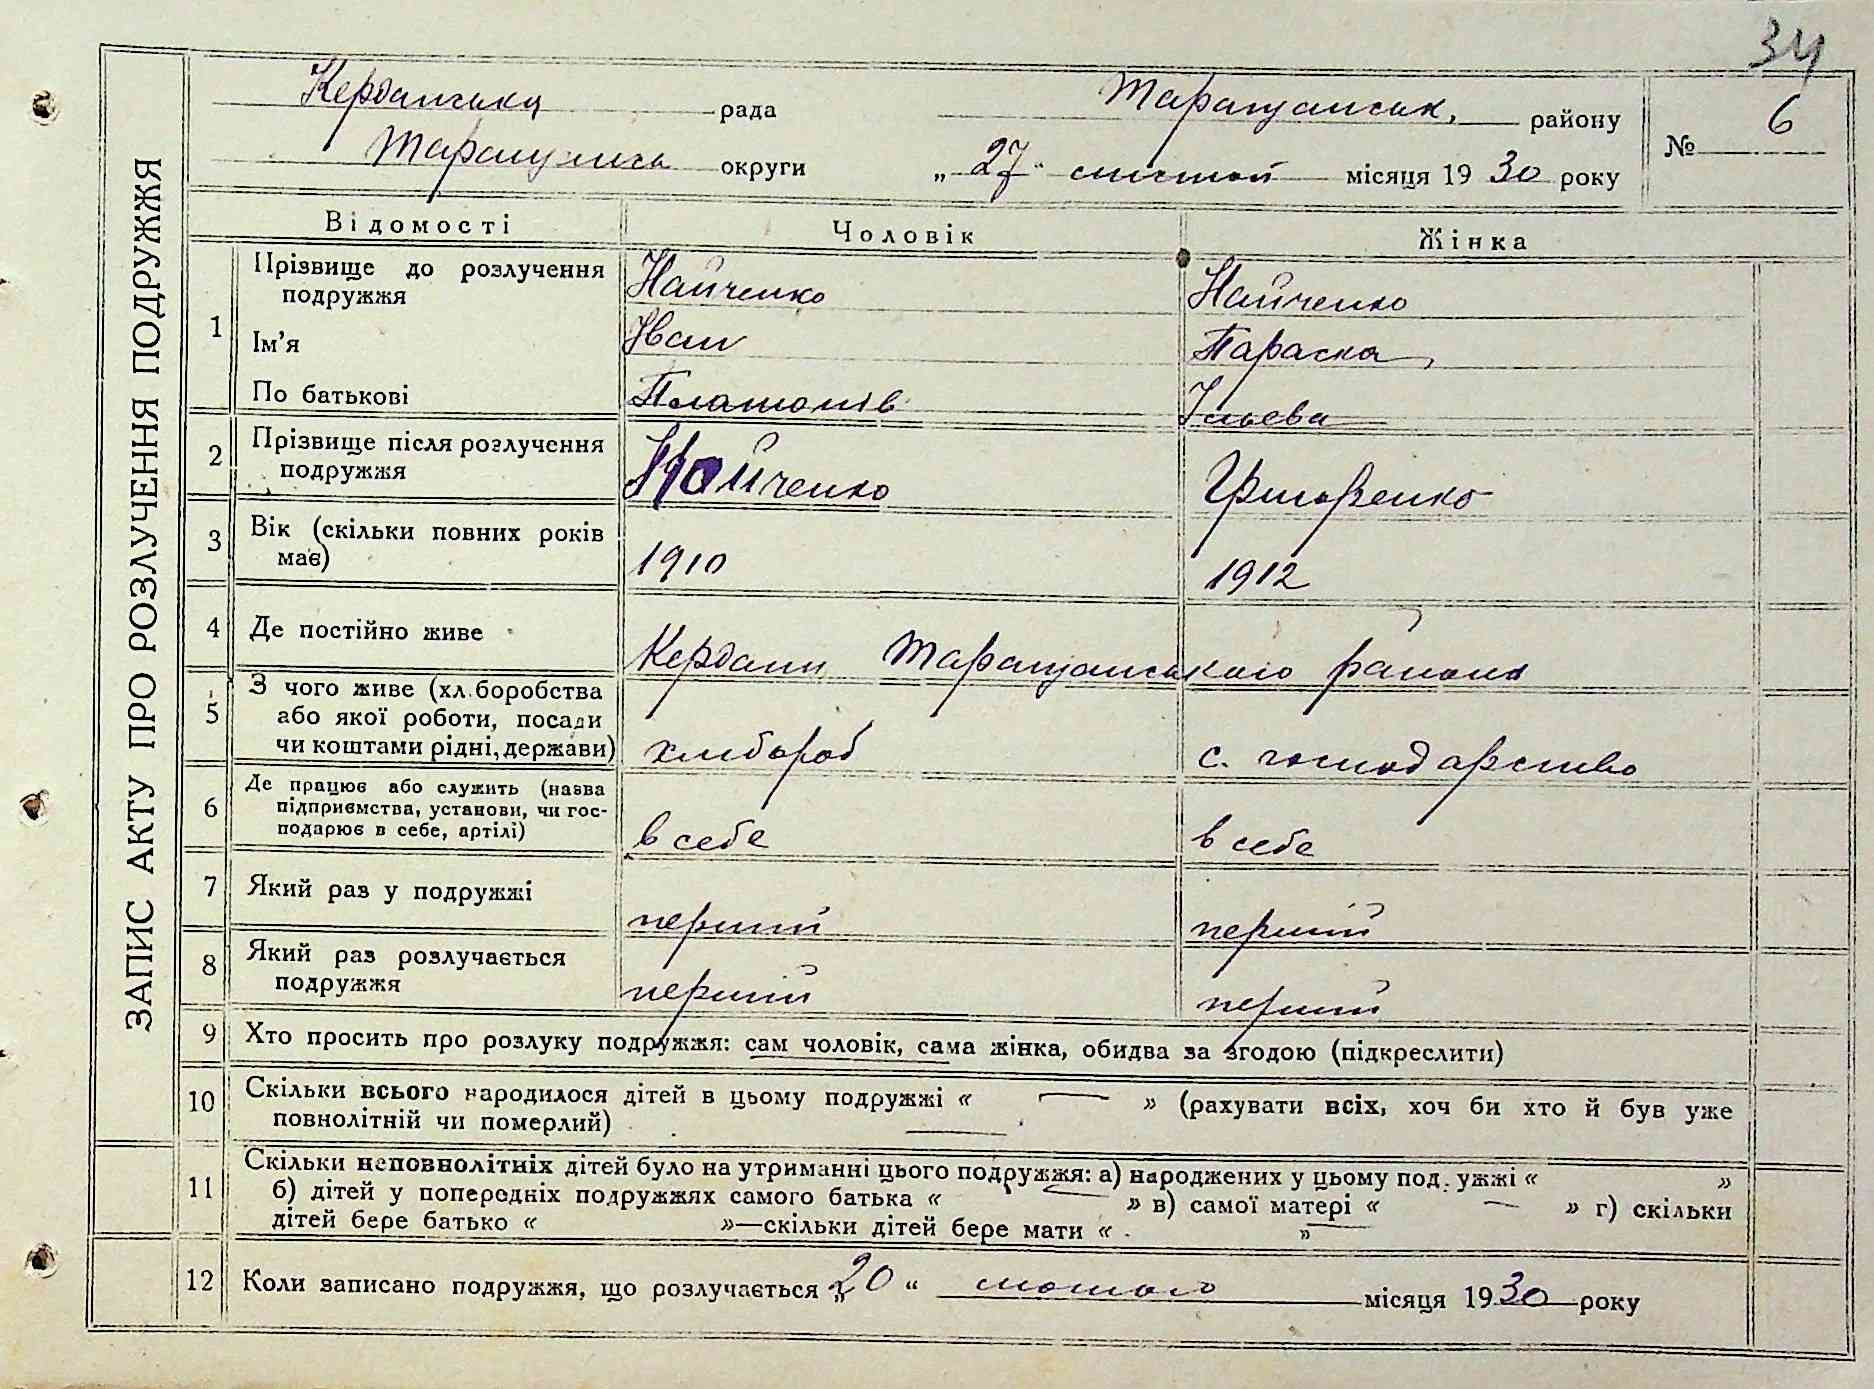 34
Керданська рада Таращанськ. району № 6
Таращанська округи „27" листопад місяця 1930 року
ЗАПИС АКТУ ПРО РОЗЛУЧЕННЯ ПОДРУЖЖЯ
Відомості Чоловік Жінка
1 Прізвище до розлучення подружжя Найченко Найченко
Ім'я Иван Параска
По батькові Платонів Ільєва
2 Прізвище після розлучення подружжя Найченко Григоренко
3 Вік (скільки повних років має) 1910 1912
4 Де постійно живе Кердани Таращанського района
5 З чого живе (хл.боробства
або якої роботи, посади
чи коштами рідні, держави) хлібороб с. господарство
6 Де працює або служить (назва
підприємства, установи, чи гос-
подарює в себе, артілі) в себе в себе
7 Який раз у подружжі перший перший
8 Який раз розлучається
подружжя перший перший
9 Хто просить про розлуку подружжя: сам чоловік, сама жінка, обидва за згодою (підкреслити)
10 Скільки всього народилося дітей в цьому подружжі « — » (рахувати всіх, хоч би хто й був уже
повнолітній чи померлий) —
11 Скільки неповнолітніх дітей було на утриманні цього подружжя: а) народжених у цьому под. ужжі « »
б) дітей у попередніх подружжях самого батька « — » в) самої матері « — » г) скільки
дітей бере батько « »—скільки дітей бере мати « — »
12 Коли записано подружжя, що розлучається „20" лютого місяця 1930 року